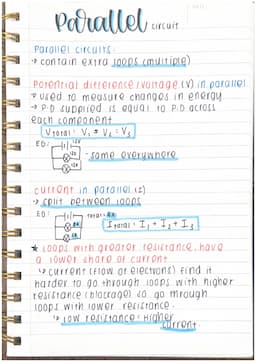 Parallel circuit
Parallel circuits:
→ contain extra loops (multiple)
Potential difference/voltage (V) in parallel
→ used to measure changes in energy
→ P.D supplied is equal to P.D across
each component
Vtotal = V₁ = V₂ = V₃
EG:
12V
12V
12V
- same everywhere
current in parallel (I)
→ split between loops
EG:
total =
Itotal = I₁ + I₂ + I₃
★ loops with greater resistance, have
a lower share of current
↳ current (flow of electrons) find it
harder to go through loops with higher
resistance (blockage) so go through
loops with lower resistance.
↳ low resistance = Higher
current